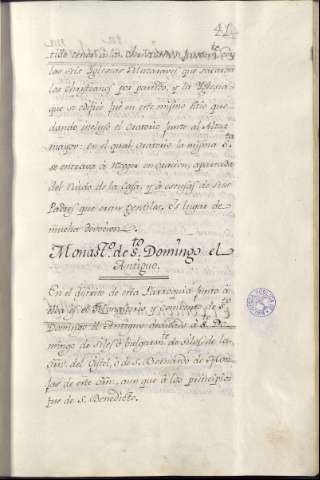 41
las seis Iglesias Muzarabes que sacaron
los Christianos por partido, y la Iglesia
que se edificó fue en este mismo sitio que-
dando incluso el Oratorio junto al Altar
mayor: en el qual oratorio la misma S.ta
se entraba à tener en oracion, apartada
del ruido de la Casa, y à escusas de sus
Padres que eran gentiles. Es lugar de
mucha devocion.
Monast.o de S.to Domingo el
Antiguo.
En el distrito de esta Parroquia junto à
ella es el Monasterio y Convento de S.to
Domingo el Antiguo dedicado à S.to Do-
mingo de Silos ò bulgarm.te de Silos de la
del Cistel, ò de S. Bernardo de Mon-
jas de este aunque à los principios
fue de S. Benedicto.